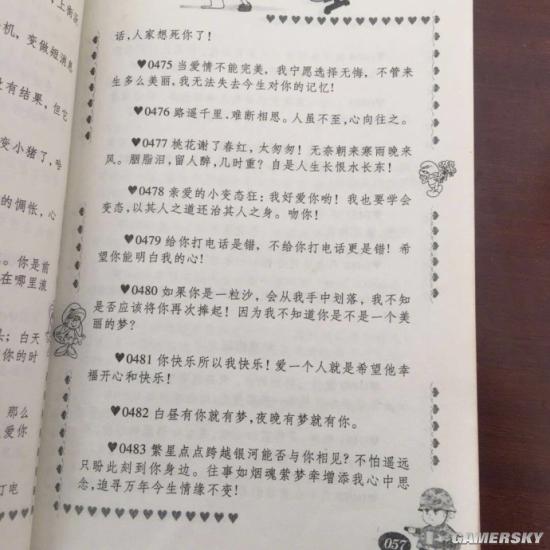 上街汤
机，变做短消息
没有结果，但它
变小猪了，哈
的惆怅，心
。你是前
在哪里流
头；白天
你的时
那么
爱你
打电
话，人家想死你了！
♥0475 当爱情不能完美，我宁愿选择无悔，不管来
生多么美丽，我无法失去今生对你的记忆！
♥0476 路遥千里，难断相思。人虽不至，心向往之。
♥0477 桃花谢了春红，太匆匆！无奈朝来寒雨晚来
风。胭脂泪，留人醉，几时重？自是人生长恨水长东！
♥0478 亲爱的小变态狂：我好爱你哟！我也要学会
变态，以其人之道还治其人之身。吻你！
♥0479 给你打电话是错，不给你打电话更是错！希
望你能明白我的心！
♥0480 如果你是一粒沙，会从我手中划落，我不知
是否应该将你再次捧起！因为我不知道你是不是一个美
丽的梦？
♥0481 你快乐所以我快乐！爱一个人就是希望他幸
福开心和快乐！
♥0482 白昼有你就有梦，夜晚有梦就有你。
♥0483 繁星点点跨越银河能否与你相见？不怕遥远
只盼此刻到你身边。往事如烟魂萦梦牵增添我心中思
念，追寻万年今生情缘不变！
057
GAMERSKY